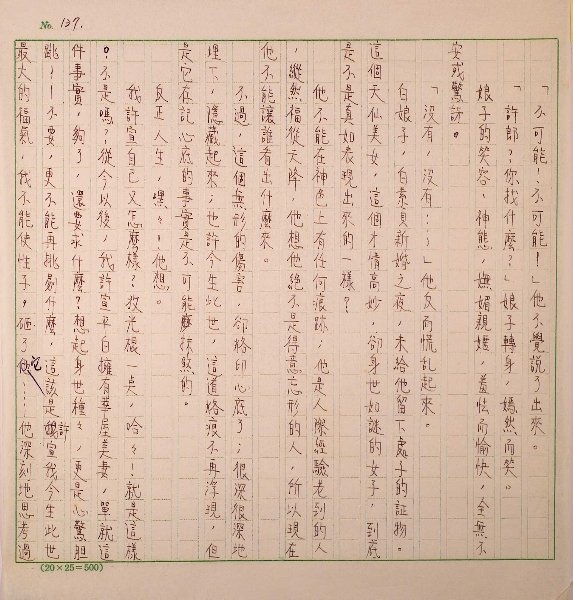 No. 137.
「不可能！不可能！」他不覺說了出來。
「許郎？你找什麼？」娘子轉身，嫣然而笑。
娘子的笑容，神態，嫵媚親嬺，羞怯而愉快，全無不
安或驚訝。
「沒有，沒有……」他反而慌亂起來。
白娘子，白素貞新婚之夜，未給他留下處子的証物。
這個天仙美女，這個才情高妙，卻身世如謎的女子，到底
是不是真如表現出來的一樣？
他不能在神色上有任何痕跡，他是人際經驗老到的人
，縱然福從天降，他想他絕不是得意忘形的人，所以現在
他不能讓誰看出什麼來。
不過，這個無形的傷害 卻烙印心底了；很深很深地
埋下，隱藏起來；也許今生此世，這道烙痕不再浮現，但
是它在記心底的事實是不可能抹煞的。
反正人生，嘿々！他想。
我許宣自己又怎麼樣？放光棍一點，哈々！就是這樣
。不是嗎？從今以後，我許宣平白擁有華屋美妻，單就這
件事實，夠了，還要求什麼？想起身世種々，更是心驚胆
跳？！不要，更不能再挑剔什麼，這該是許宣我今生此世
最大的福氣，我不能使性子，砸了它……他深刻地思考過
(20×25=500)